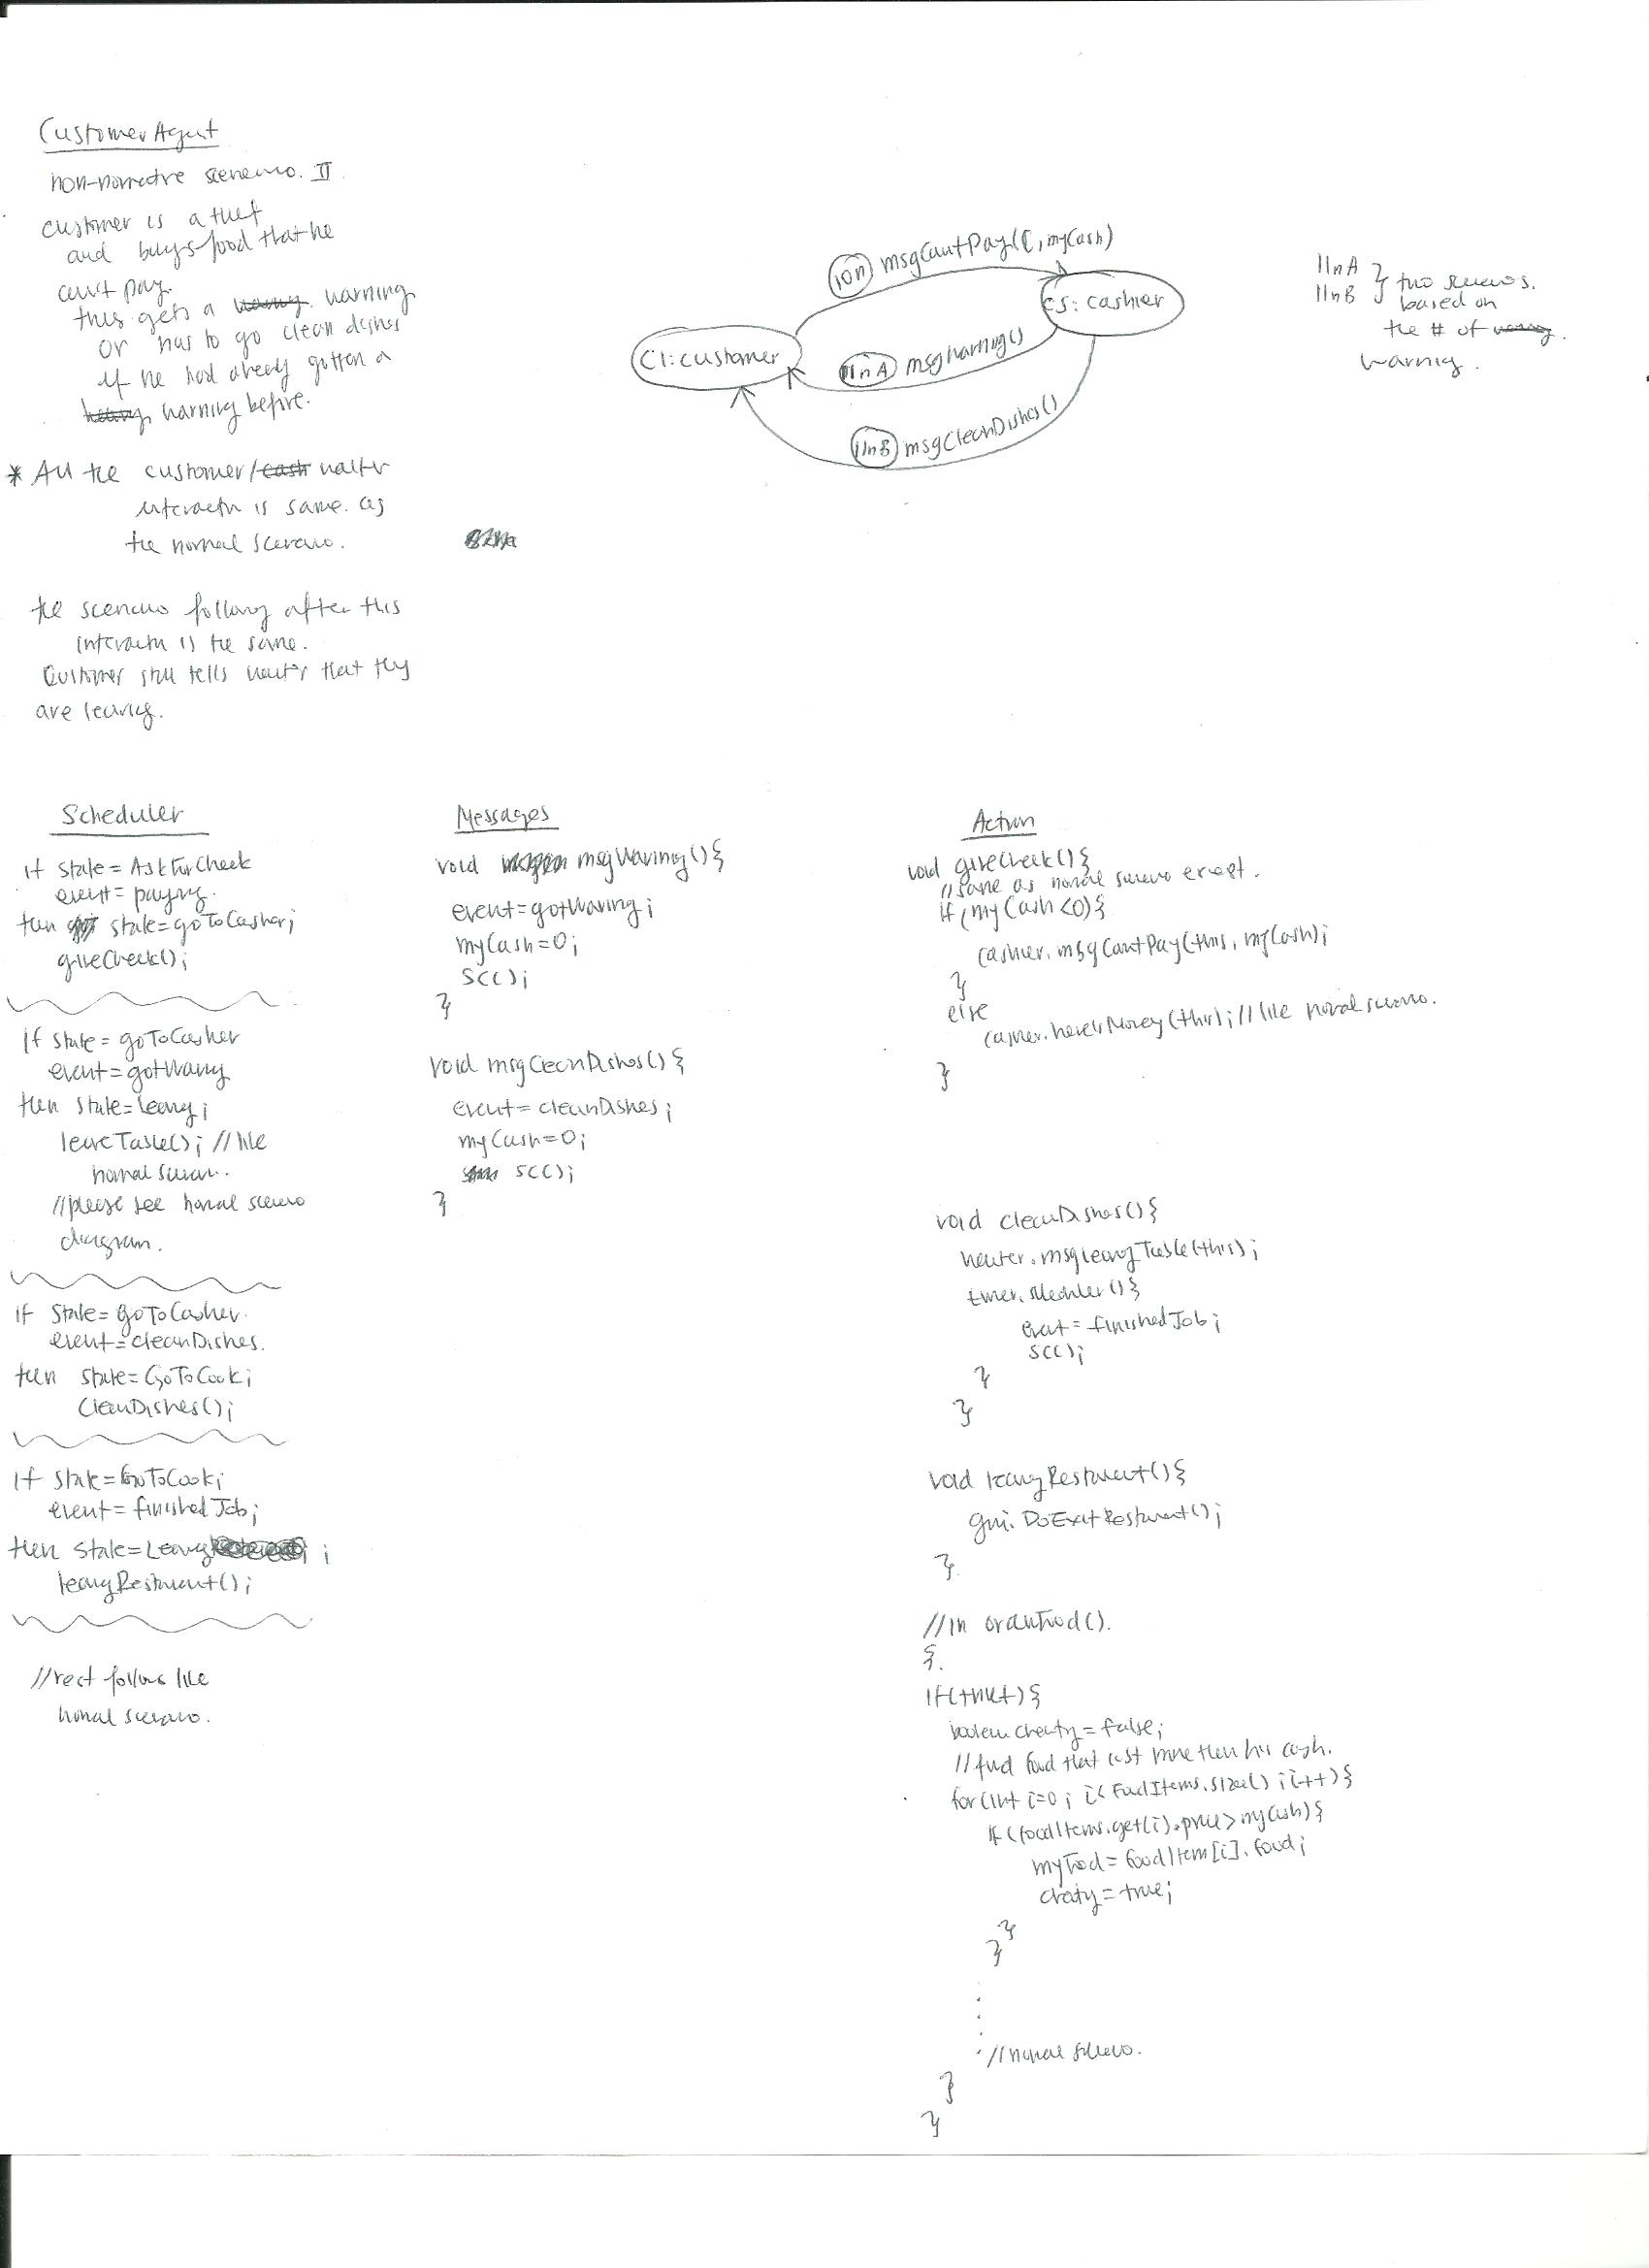 CustomerAgent
non-normative scenario. II.
customer is a thief
and buys food that he
can't pay.
thus gets a warning. warning
or has to go clean dishes
if he had already gotten a
warning before.
* All the customer/cash waiter
interaction is same as
the normal scenario.
the scenario following after this
interaction is the same.
Customer still tells waiter that they
are leaving.
10n msgCantPay(C, myCash)
C1: customer
cs: cashier
11nA msgWarning()
11nB msgCleanDishes()
11nA
11nB } two scenarios.
based on
the # of
warning.
Scheduler
if state = AskForCheck
event = paying.
then state = goToCashier;
giveCheck();
if state = goToCashier
event = gotWarning
then state = Leaving;
leaveTable(); // like
normal scenario.
// please see normal scenario
diagram.
if state = goToCashier.
event = cleanDishes.
then state = GoToCook;
CleanDishes();
if state = GoToCook;
event = finishedJob;
then state = Leaving ;
leavingRestaurant();
// rest follows like
normal scenario.
Messages
void msgWarning() {
event = gotWarning;
myCash = 0;
SCC();
}
void msgCleanDishes() {
event = cleanDishes;
myCash = 0;
SCC();
}
Action
void giveCheck() {
// same as normal scenario except.
if (myCash < 0) {
cashier.msgCantPay(this, myCash);
}
else
cashier.here'sMoney(this); // like normal scenario.
}
void cleanDishes() {
waiter.msgLeavingTable(this);
timer.scheduler() {
event = finishedJob;
SCC();
}
}
void leavingRestaurant() {
gui.DoExitRestaurant();
}
// in orderFood().
{.
if (thief) {
boolean cheating = false;
// find food that cost more then his cash.
for (int i=0; i < FoodItems.size(); i++) {
if (foodItems.get(i).price > myCash) {
myFood = foodItem[i].food;
cheating = true;
}
}
// normal scenario.
}
}